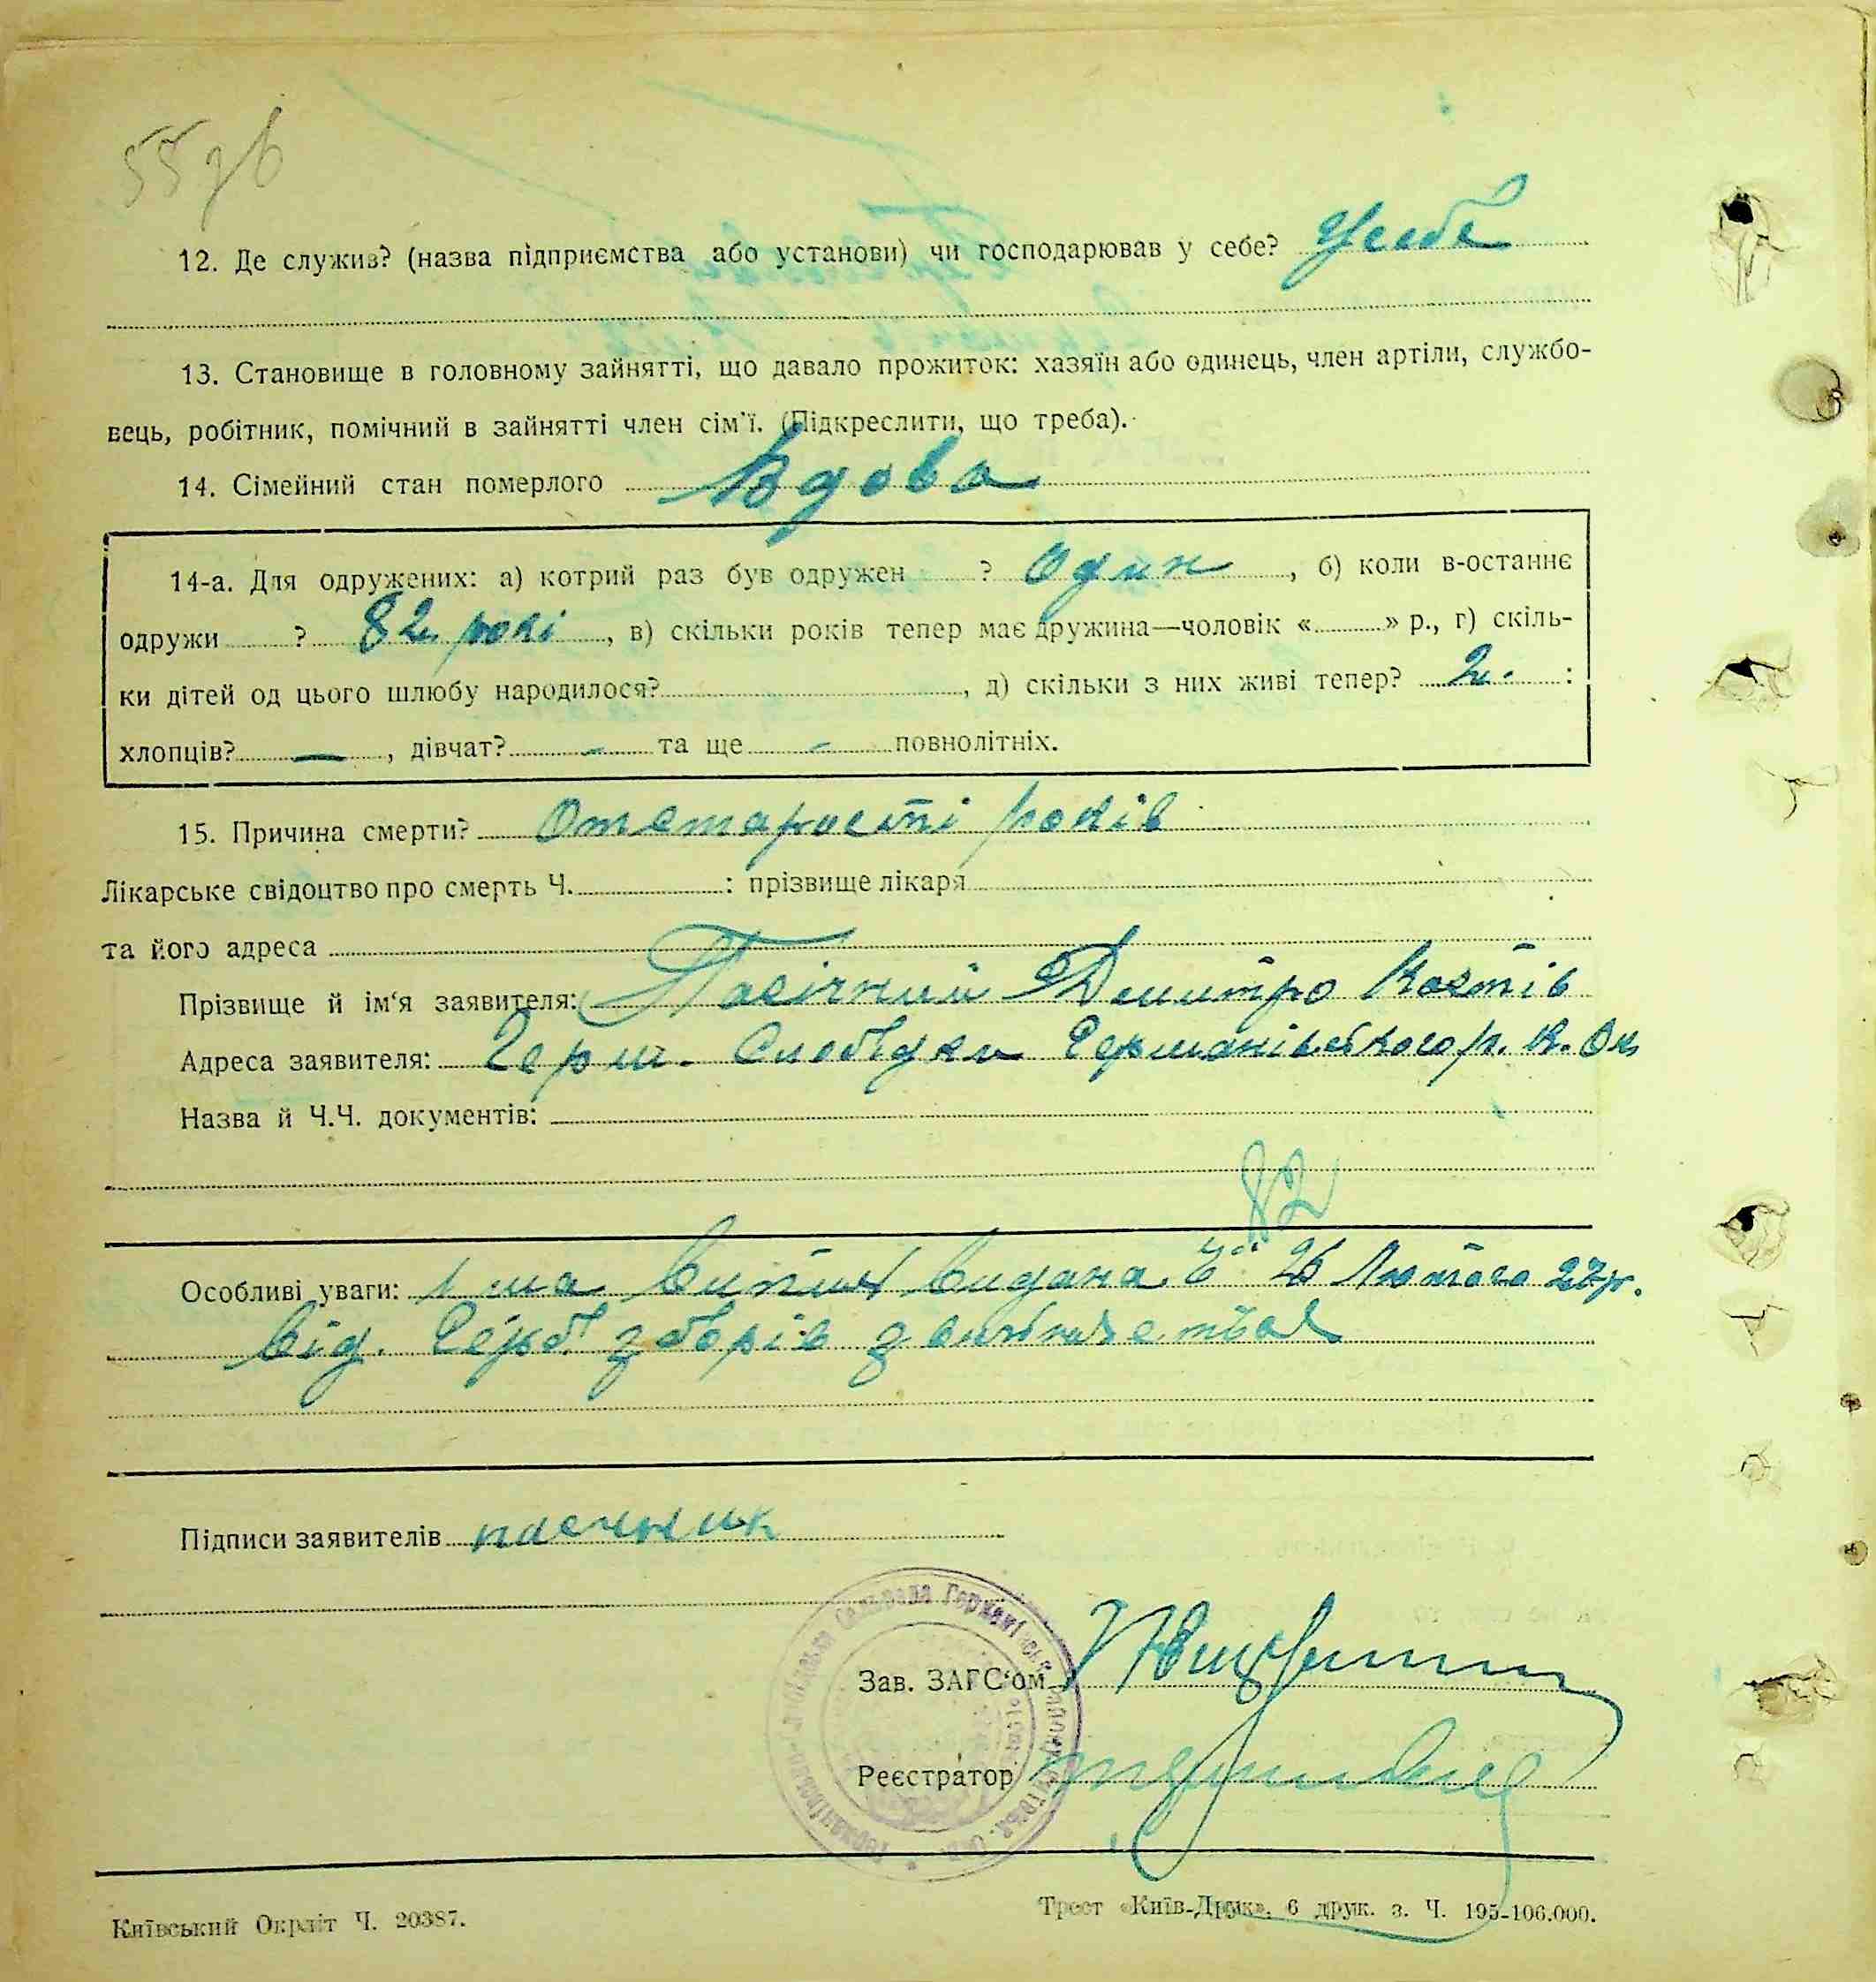 55 зв
12. Де служив? (назва підприємства або установи) чи господарював у себе? У себе
13. Становище в головному зайнятті, що давало прожиток: хазяїн або одинець, член артіли, службо-
вець, робітник, помічний в зайнятті член сім'ї. (Підкреслити, що треба).
14. Сімейний стан померлого Вдова
14-а. Для одружених: а) котрий раз був одружен ? Один, б) коли в-останнє
одружи ? 82 рокі, в) скільки років тепер має дружина—чоловік « » р., г) скіль-
ки дітей од цього шлюбу народилося? , д) скільки з них живі тепер? 2. :
хлопців? —, дівчат? - та ще - повнолітніх.
15. Причина смерти? От старості років
Лікарське свідоцтво про смерть Ч. : прізвище лікаря
та його адреса
Прізвище й ім'я заявителя: Пасічний Дмитро Костів
Адреса заявителя: Герм. Слобідка Германівського р. К. Ок
Назва й Ч.Ч. документів:
82
Особливі уваги: 1 ша випись видана 26 Лютого 27 р.
від. Герб зборів
Підписи заявителів пасечник
Зав. ЗАГС'ом
Реєстратор
Київський Окрліт Ч. 20387.
Трест «Київ-Друк». 6 друк. з. Ч. 195-106.000.